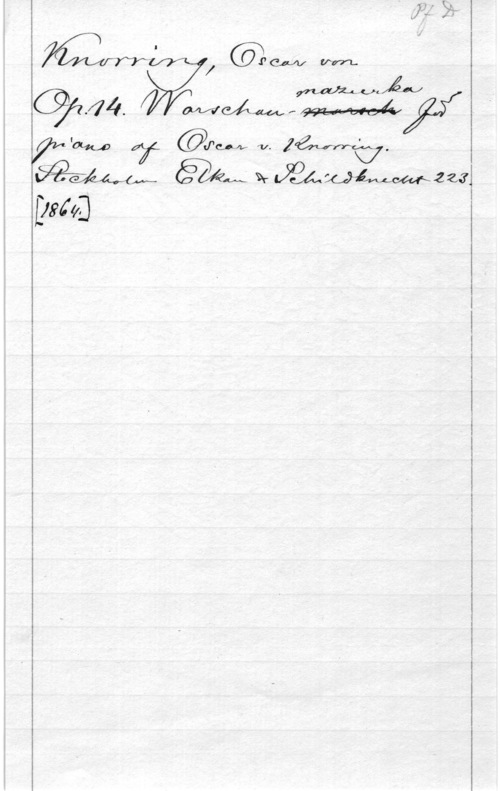 Pf D
Knorring, Oscar von
mazurka
Op. 14. Warschau-marsch för
piano af Oscar v. Knorring.
Stockholm Elkan & Schildknecht 223.
[1864.]